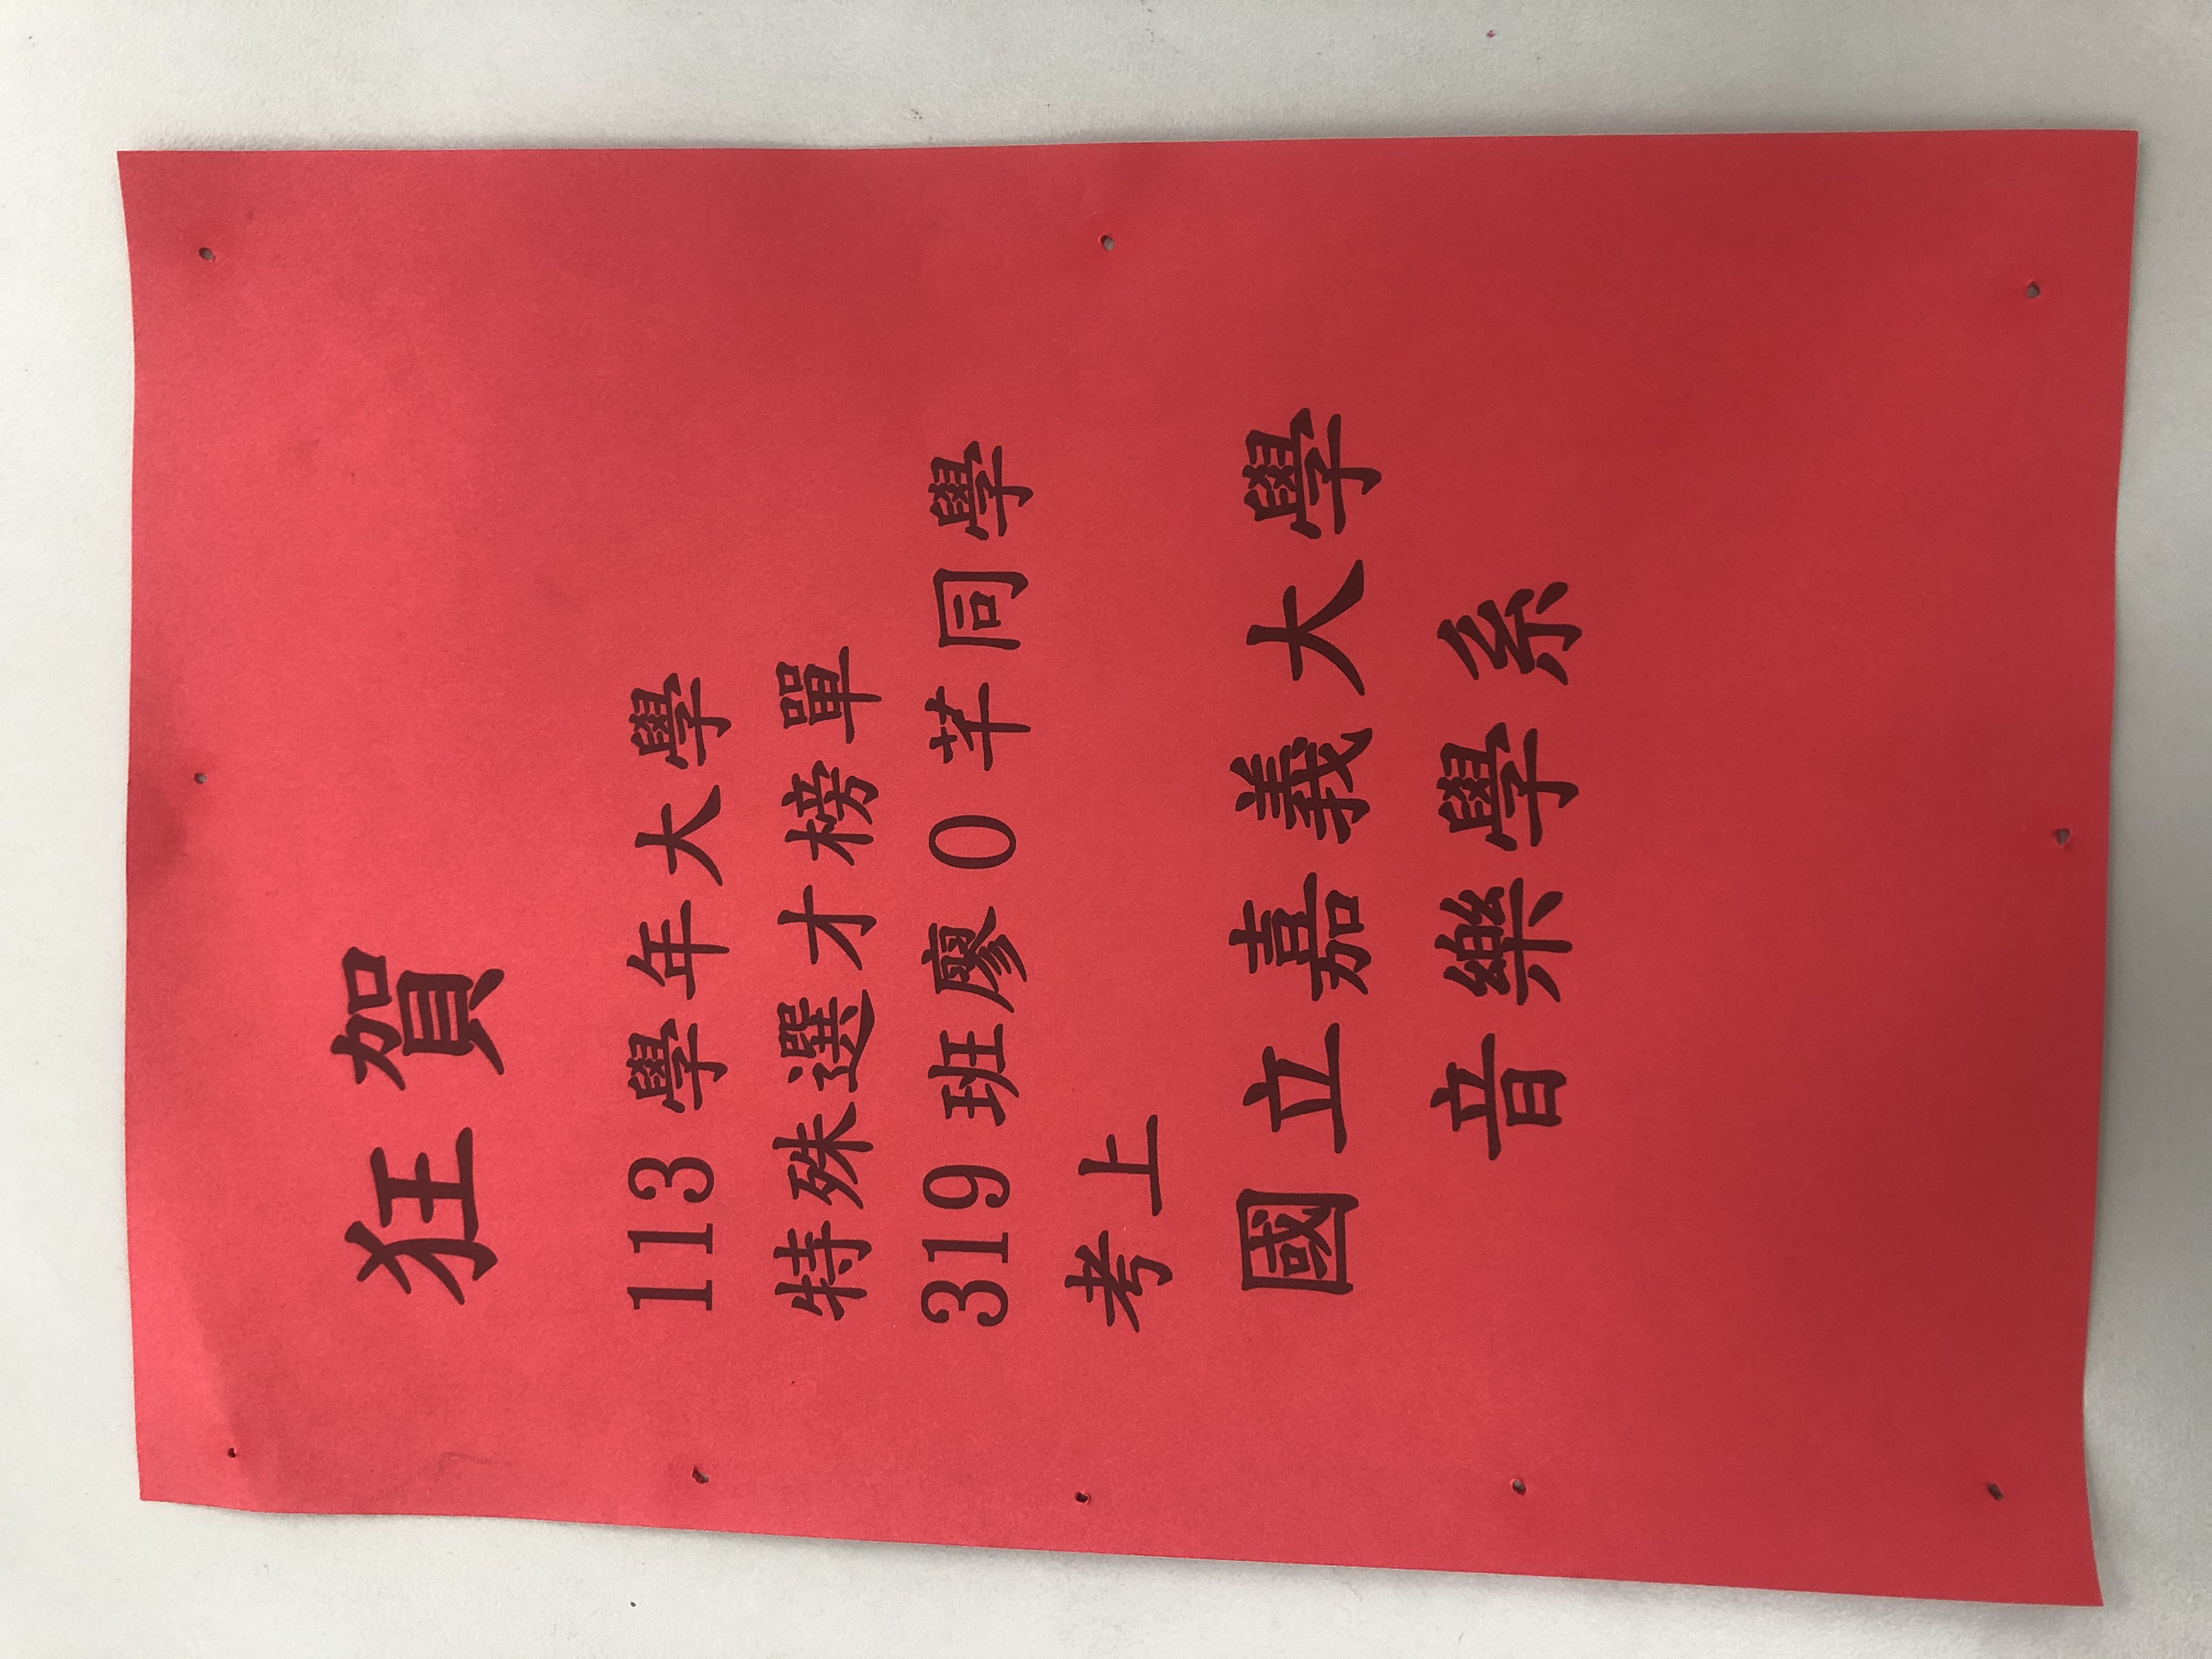 狂賀
113學年大學
特殊選才榜單
319班廖O芊同學
考上
國立嘉義大學
音樂學系